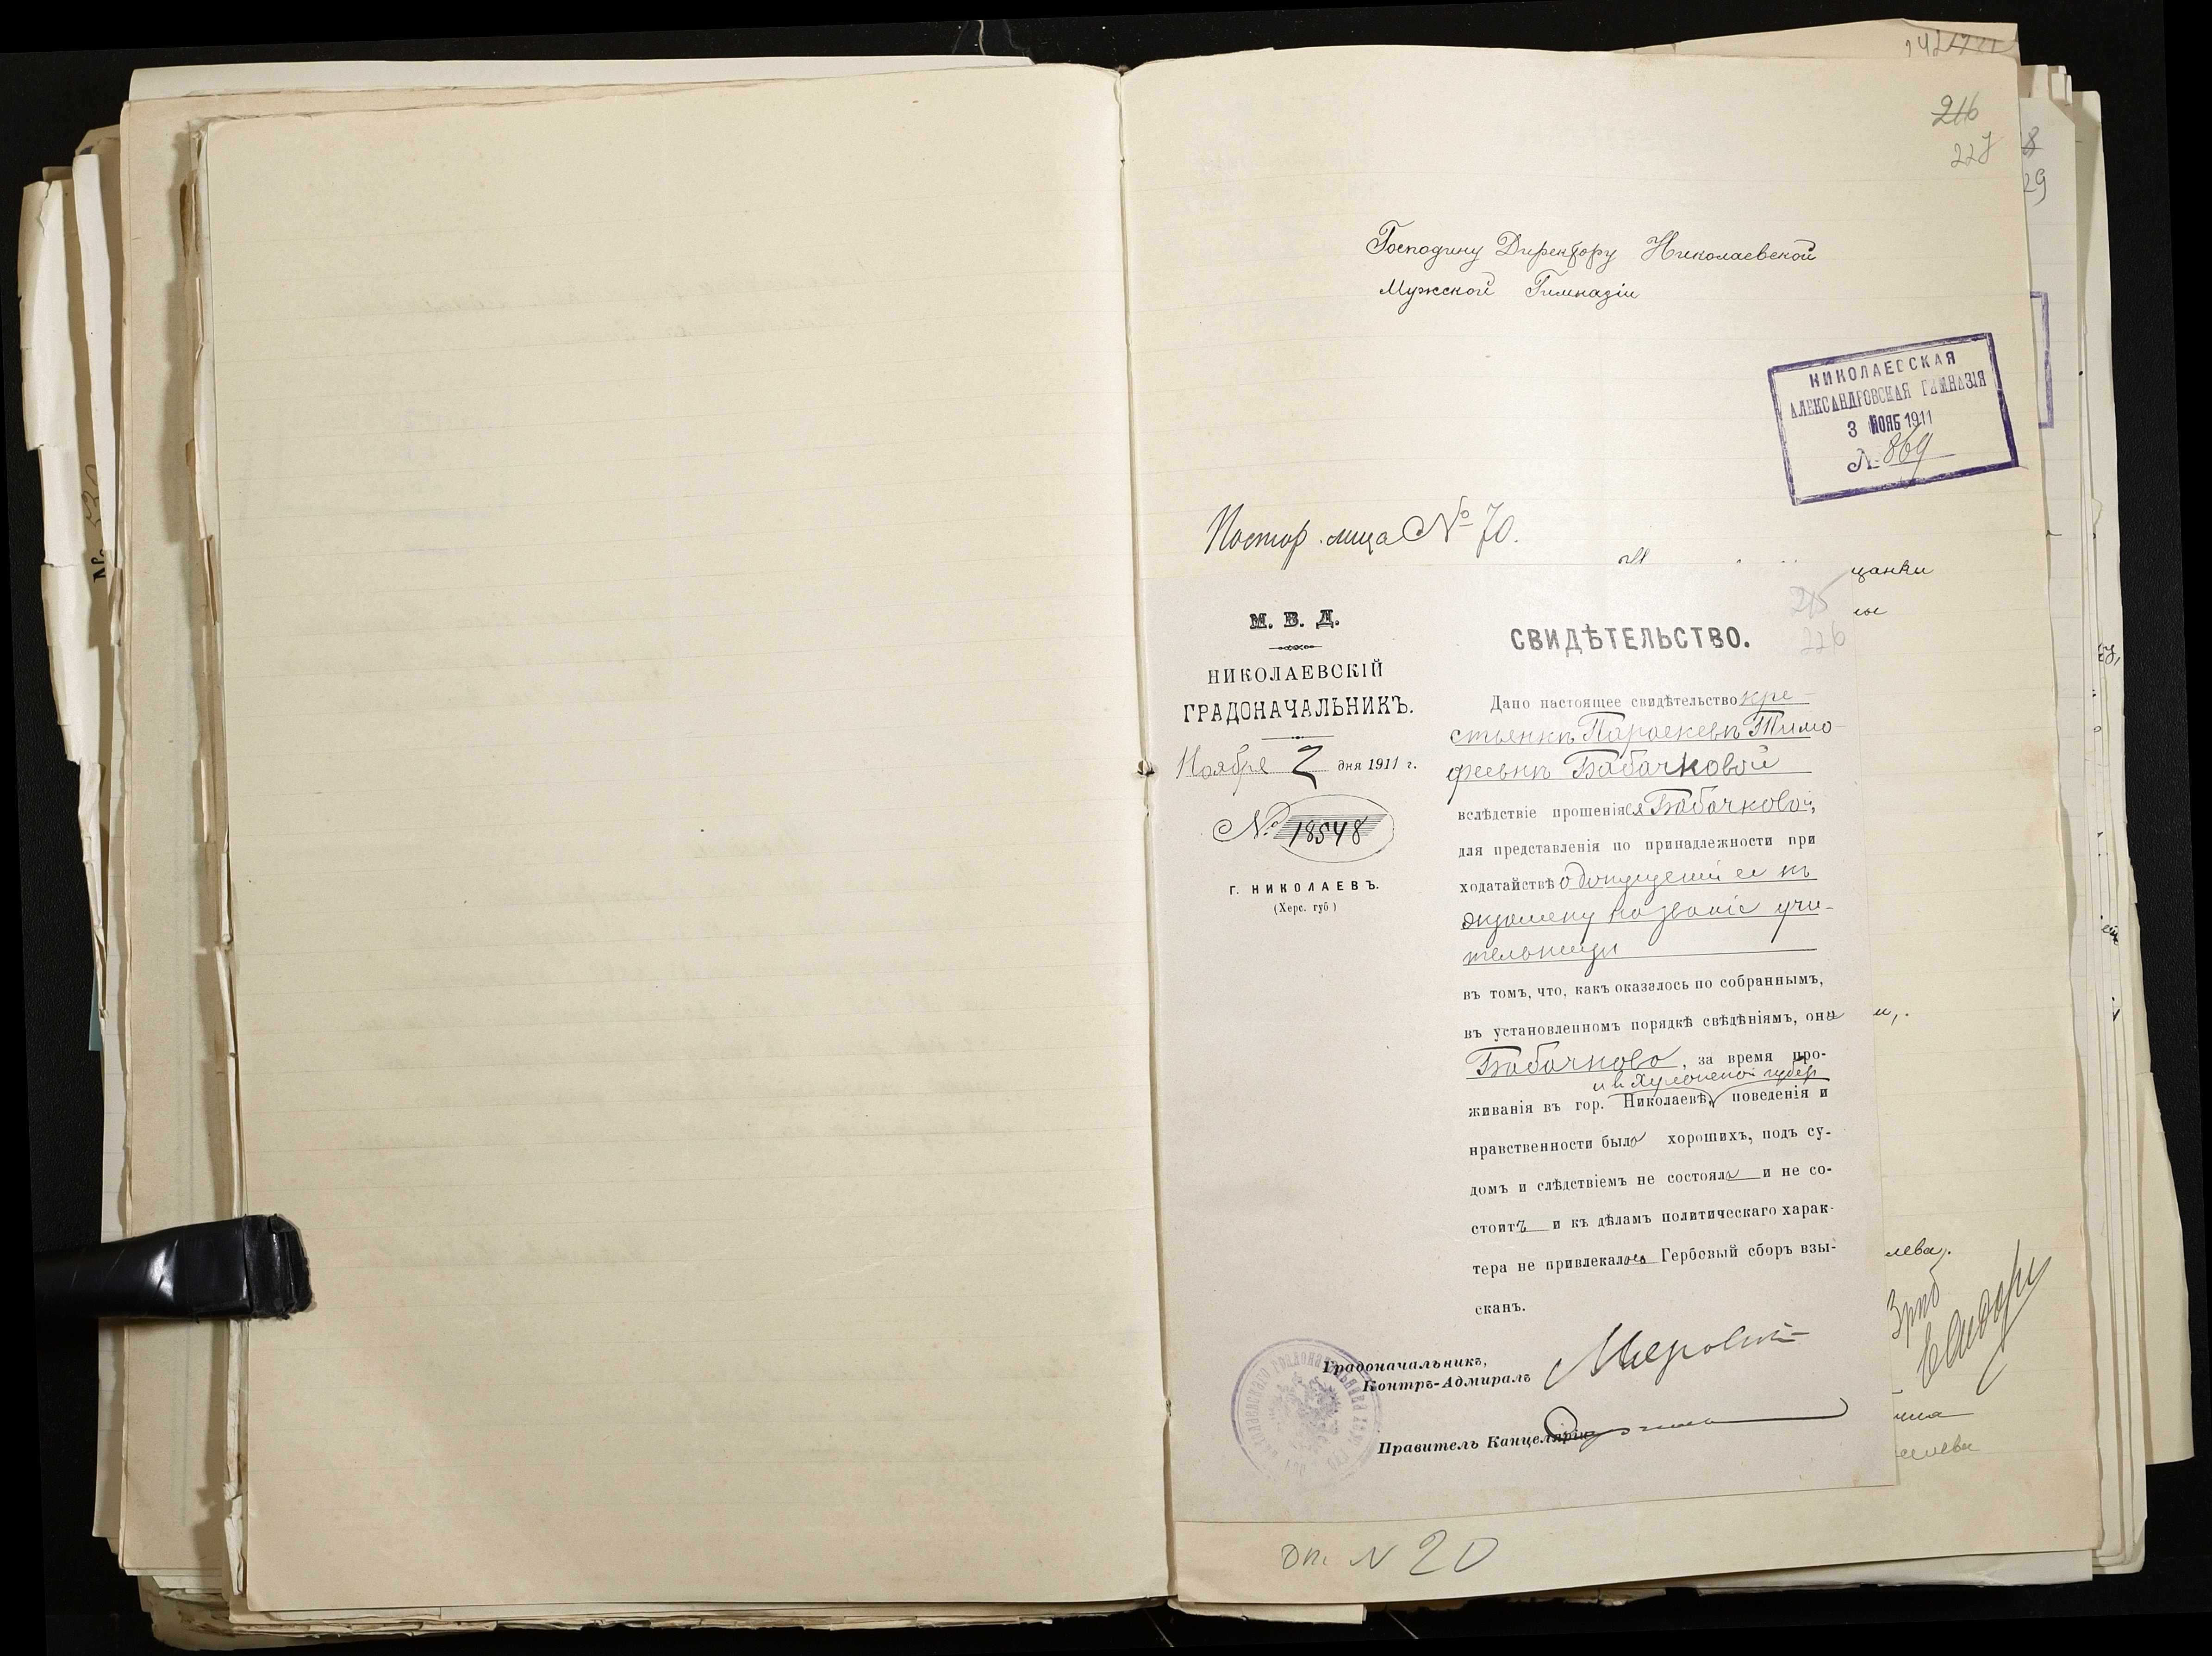 216
227
Господину Директору Николаевской
Мужской Гимназіи
НИКОЛАЕВСКАЯ
АЛЕКСАНДРОВСКАЯ ГИМНАЗІЯ
3 НОЯБ 1911
№ 869
Постор. лица № 70.
щанки
215
226
М. В. Д.
НИКОЛАЕВСКІЙ
ГРАДОНАЧАЛЬНИКЪ.
Ноября 2 дня 1911 г.
№ 18548
Г. НИКОЛАЕВЪ.
(Херс. губ)
СВИДѢТЕЛЬСТВО.
Дано настоящее свидѣтельство кре-
стьянкѣ Параскевѣ Тимо-
феевнѣ Бабачковой
вслѣдствіе прошенія ея Бабачковой,
для представленія по принадлежности при
ходатайствѣ о допущеніи ее къ
экзамену на званіе учи-
тельницы
въ томъ, что, какъ оказалось по собраннымъ,
въ установленномъ порядкѣ свѣдѣніямъ, она
Бабачкова, за время про-
и въ Херсонской губер
живанія въ гор. Николаевѣ, поведенія и
нравственности была хорошихъ, подъ су-
домъ и слѣдствіемъ не состояла и не со-
стоитъ и къ дѣламъ политическаго харак-
тера не привлекалась Гербовый сборъ взы-
сканъ.
Градоначальникъ,
Контръ-Адмиралъ
Правитель Канцеляріи
оп. N 20